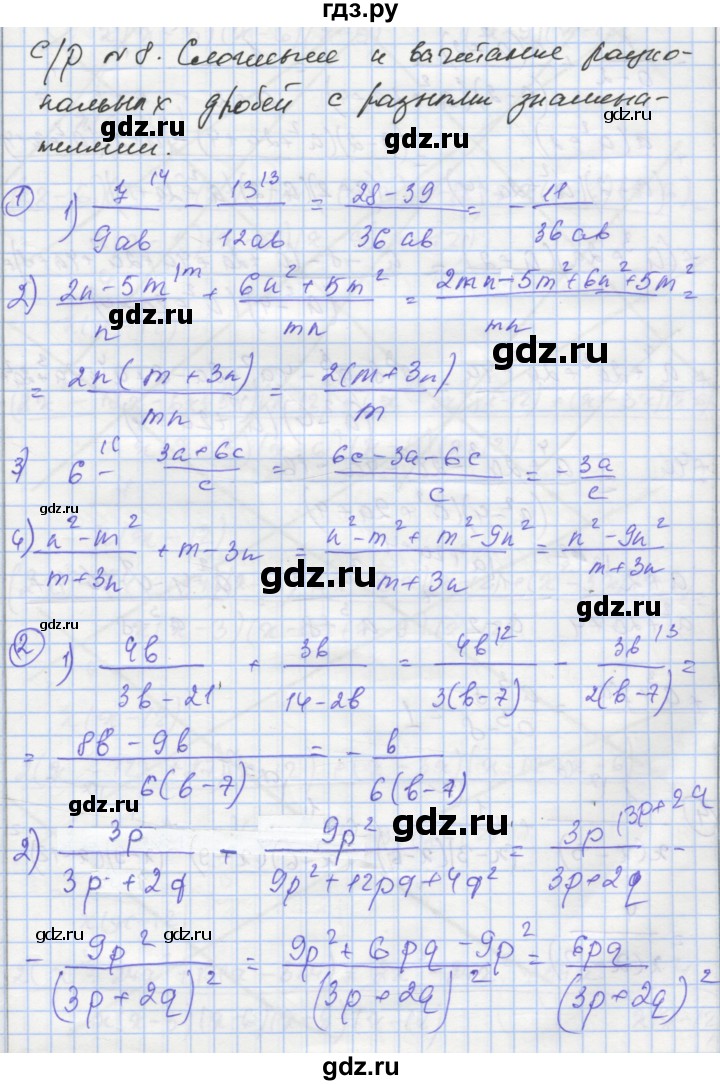 гдз.ру
С/р №8. Сложение и вычитание рацио-
нальных дробей с разными знамена-
телями.
gdz.ru gdz.ru
① 1) 7^{|4}/9ab − 13^{|3}/12ab = (28−39)/36ab = −11/36ab
2) (2n−5m^{|m})/n + (6n²+5m²)/mn = (2mn−5m²+6n²+5m²)/mn =
gdz.ru gdz.ru
= 2n(m+3n)/mn = 2(m+3n)/m
3) 6^{|c} − (3a+6c)/c = (6c−3a−6c)/c = −3a/c
gdz.ru
4) (n²−m²)/(m+3n) + m−3n = (n²−m²+m²−9n²)/(m+3n) = (n²−9n²)/(m+3n)
gdz.ru gdz.ru
② 1) 4b/(3b−21) + 3b/(14−2b) = 4b^{|2}/3(b−7) − 3b^{|3}/2(b−7) =
= (8b−9b)/6(b−7) = −b/6(b−7)
gdz.ru gdz.ru
2) 3p/(3p+2q) − 9p²/(9p²+12pq+4q²) = 3p^{|3p+2q}/(3p+2q) −
gdz.ru gdz.ru gdz.ru
− 9p²/(3p+2q)² = (9p²+6pq−9p²)/(3p+2q)² = 6pq/(3p+2q)²
gdz.ru